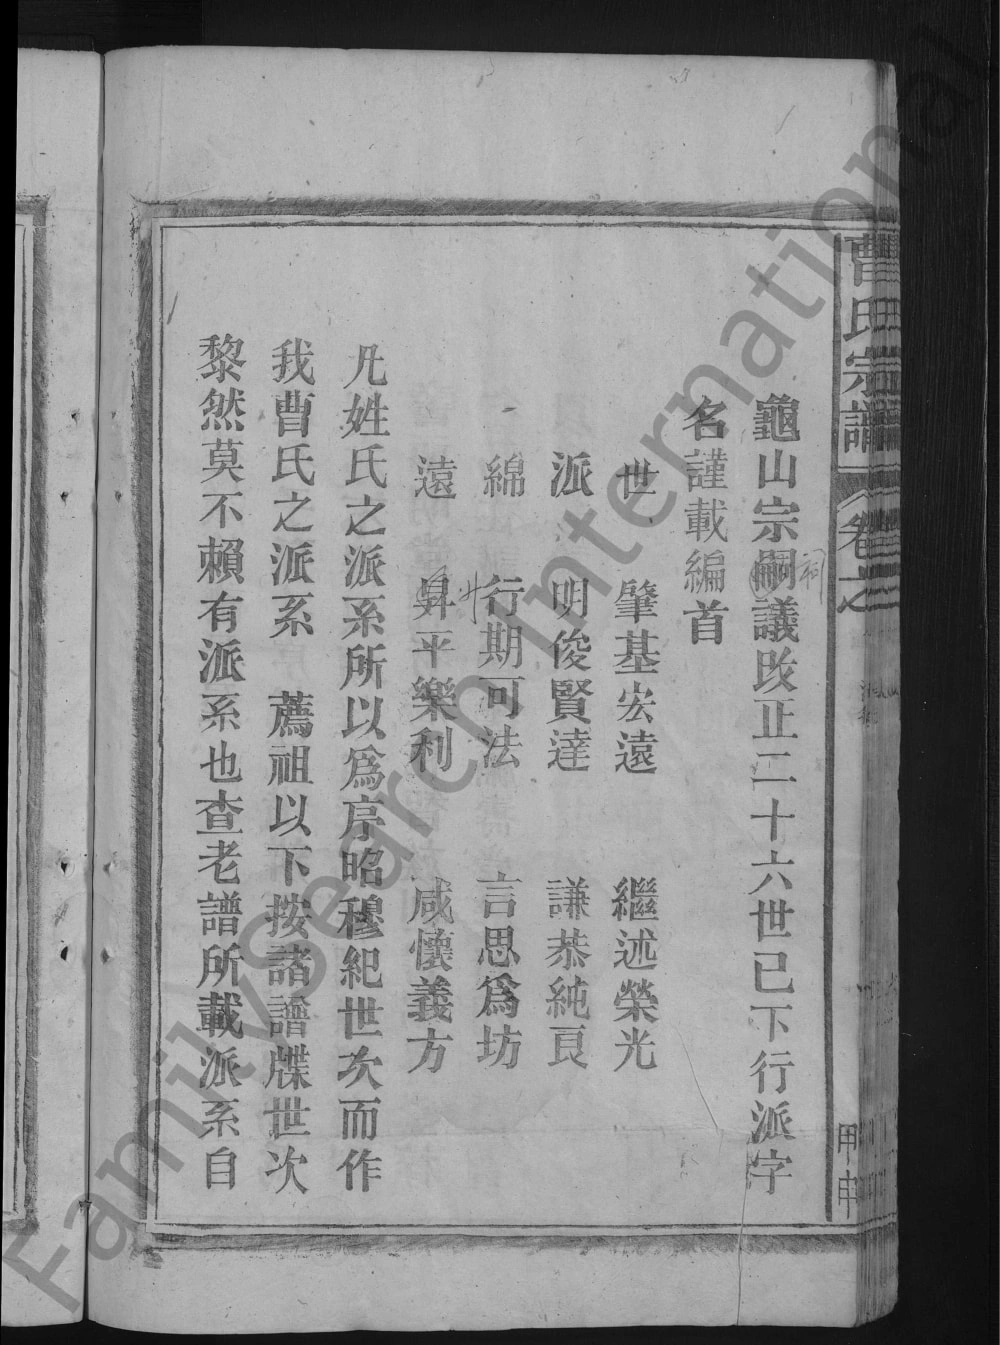 曹氏宗譜
卷之
甲申
龜山宗嗣議改正二十六世已下行派字
祠
名謹載編首
世　肇基宏遠　繼述榮光
派　明俊賢達　謙恭純良
綿　行期可法　言思爲坊
遠　昇平樂利　咸懷義方
凡姓氏之派系所以爲序昭穆紀世次而作
我曹氏之派系　薦祖以下按諸譜牒世次
黎然莫不賴有派系也查老譜所載派系自
FamilySearch International